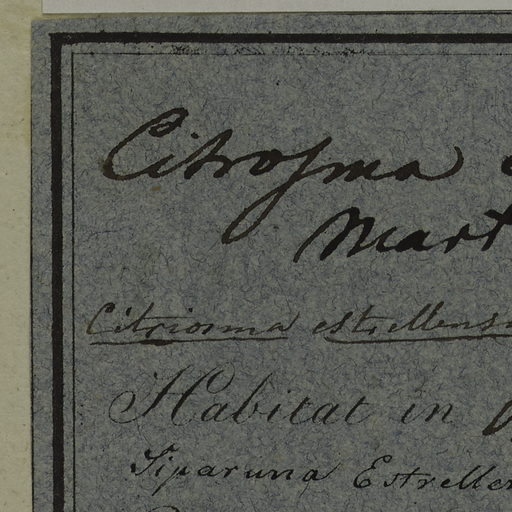 Citrosma
Mart
Citriosma estrellens
Habitat in
Siparuna Estreller